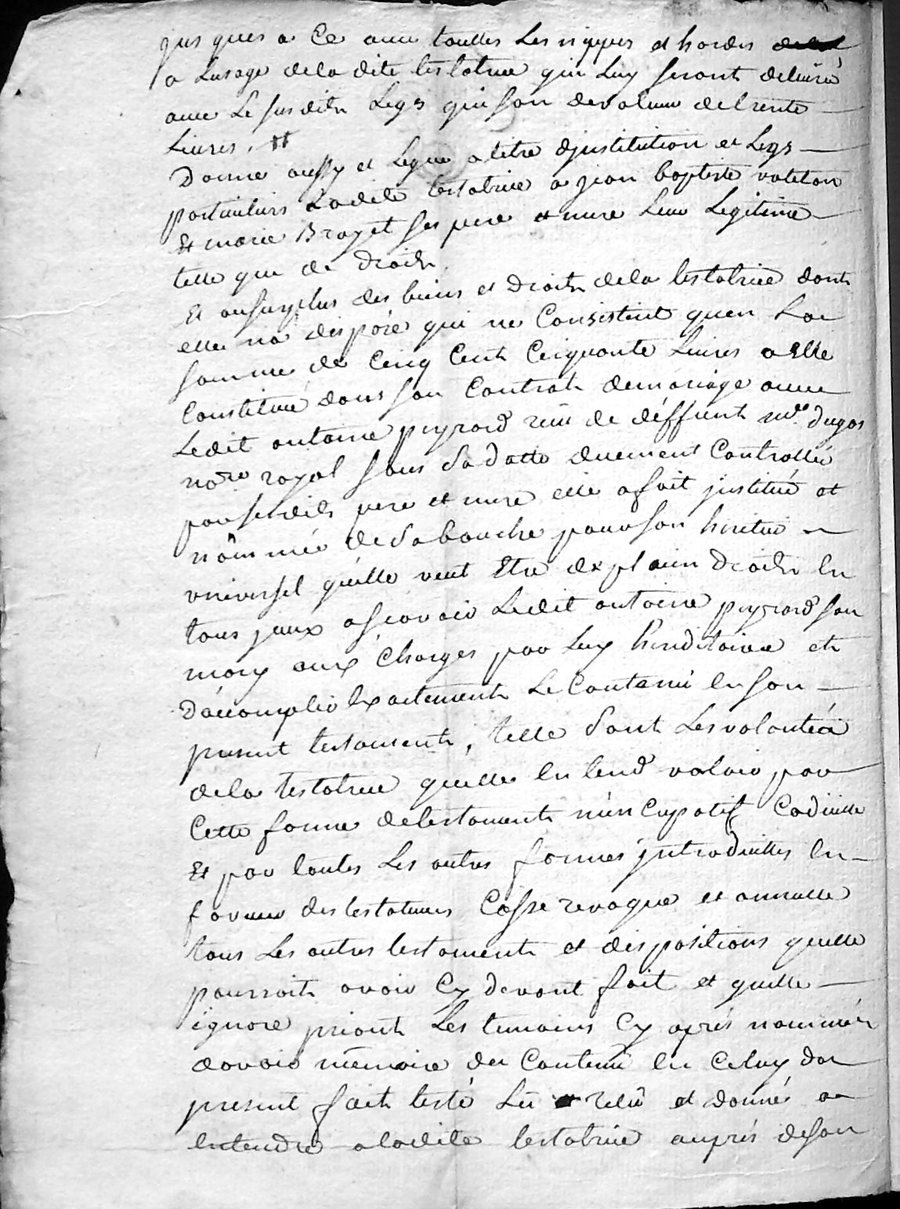 jusques a ce avec touttes Les nippes et hardes
a Lusage dela dite testatrice qui Luy seront delivré
avec Le susdit Legs qui son de valeur de trente
Livres.
Donne aussy et Legue a titre djnstitution et Legs
particuliers Ladite testatrice a jean baptiste valeton
Et marie Brayet ses pere et mere Leur Legitime
telle que de droit
Et au surplus des biens et Droits dela testatrice dont
elle na disposé qui ne Consistent quen La
somme de Cinq Cent Cinquante Livres a Elle
Constitué dans son Contrat demariage avec
Ledit antoine peyrard reçu de deffunt me. dugas
nore royal sous sa datte duement Controllé
par sesdits pere et mere elle a fait jnstitué et
nommée de sa bouche pour son heritier
vniversel quelle veut Etre de plain Droit En
tous jceux ascavoir Ledit antoine peyrard son
mary aux Charges par Luy hereditaires et
Daccomplir Exactement Le Contenu En son
present testament, telle sont Les volontés
dela testatrice quelle Entend valoir par
Cette forme detestament nuncupatif Codicille
Et par toutes Les autres formes jntroduittes En
faveur des testateurs Casse revoque et annulle
tous Les autres testaments et dispositions quelle
pourroit avoir Cy devant fait et quelle
ignore priant Les temoins Cy aprés nommés
davoir mémoire du Contenu En Celuy Dar
present fait testé Lu relu et donné a
Entendre a ladite testatrice auprés deson